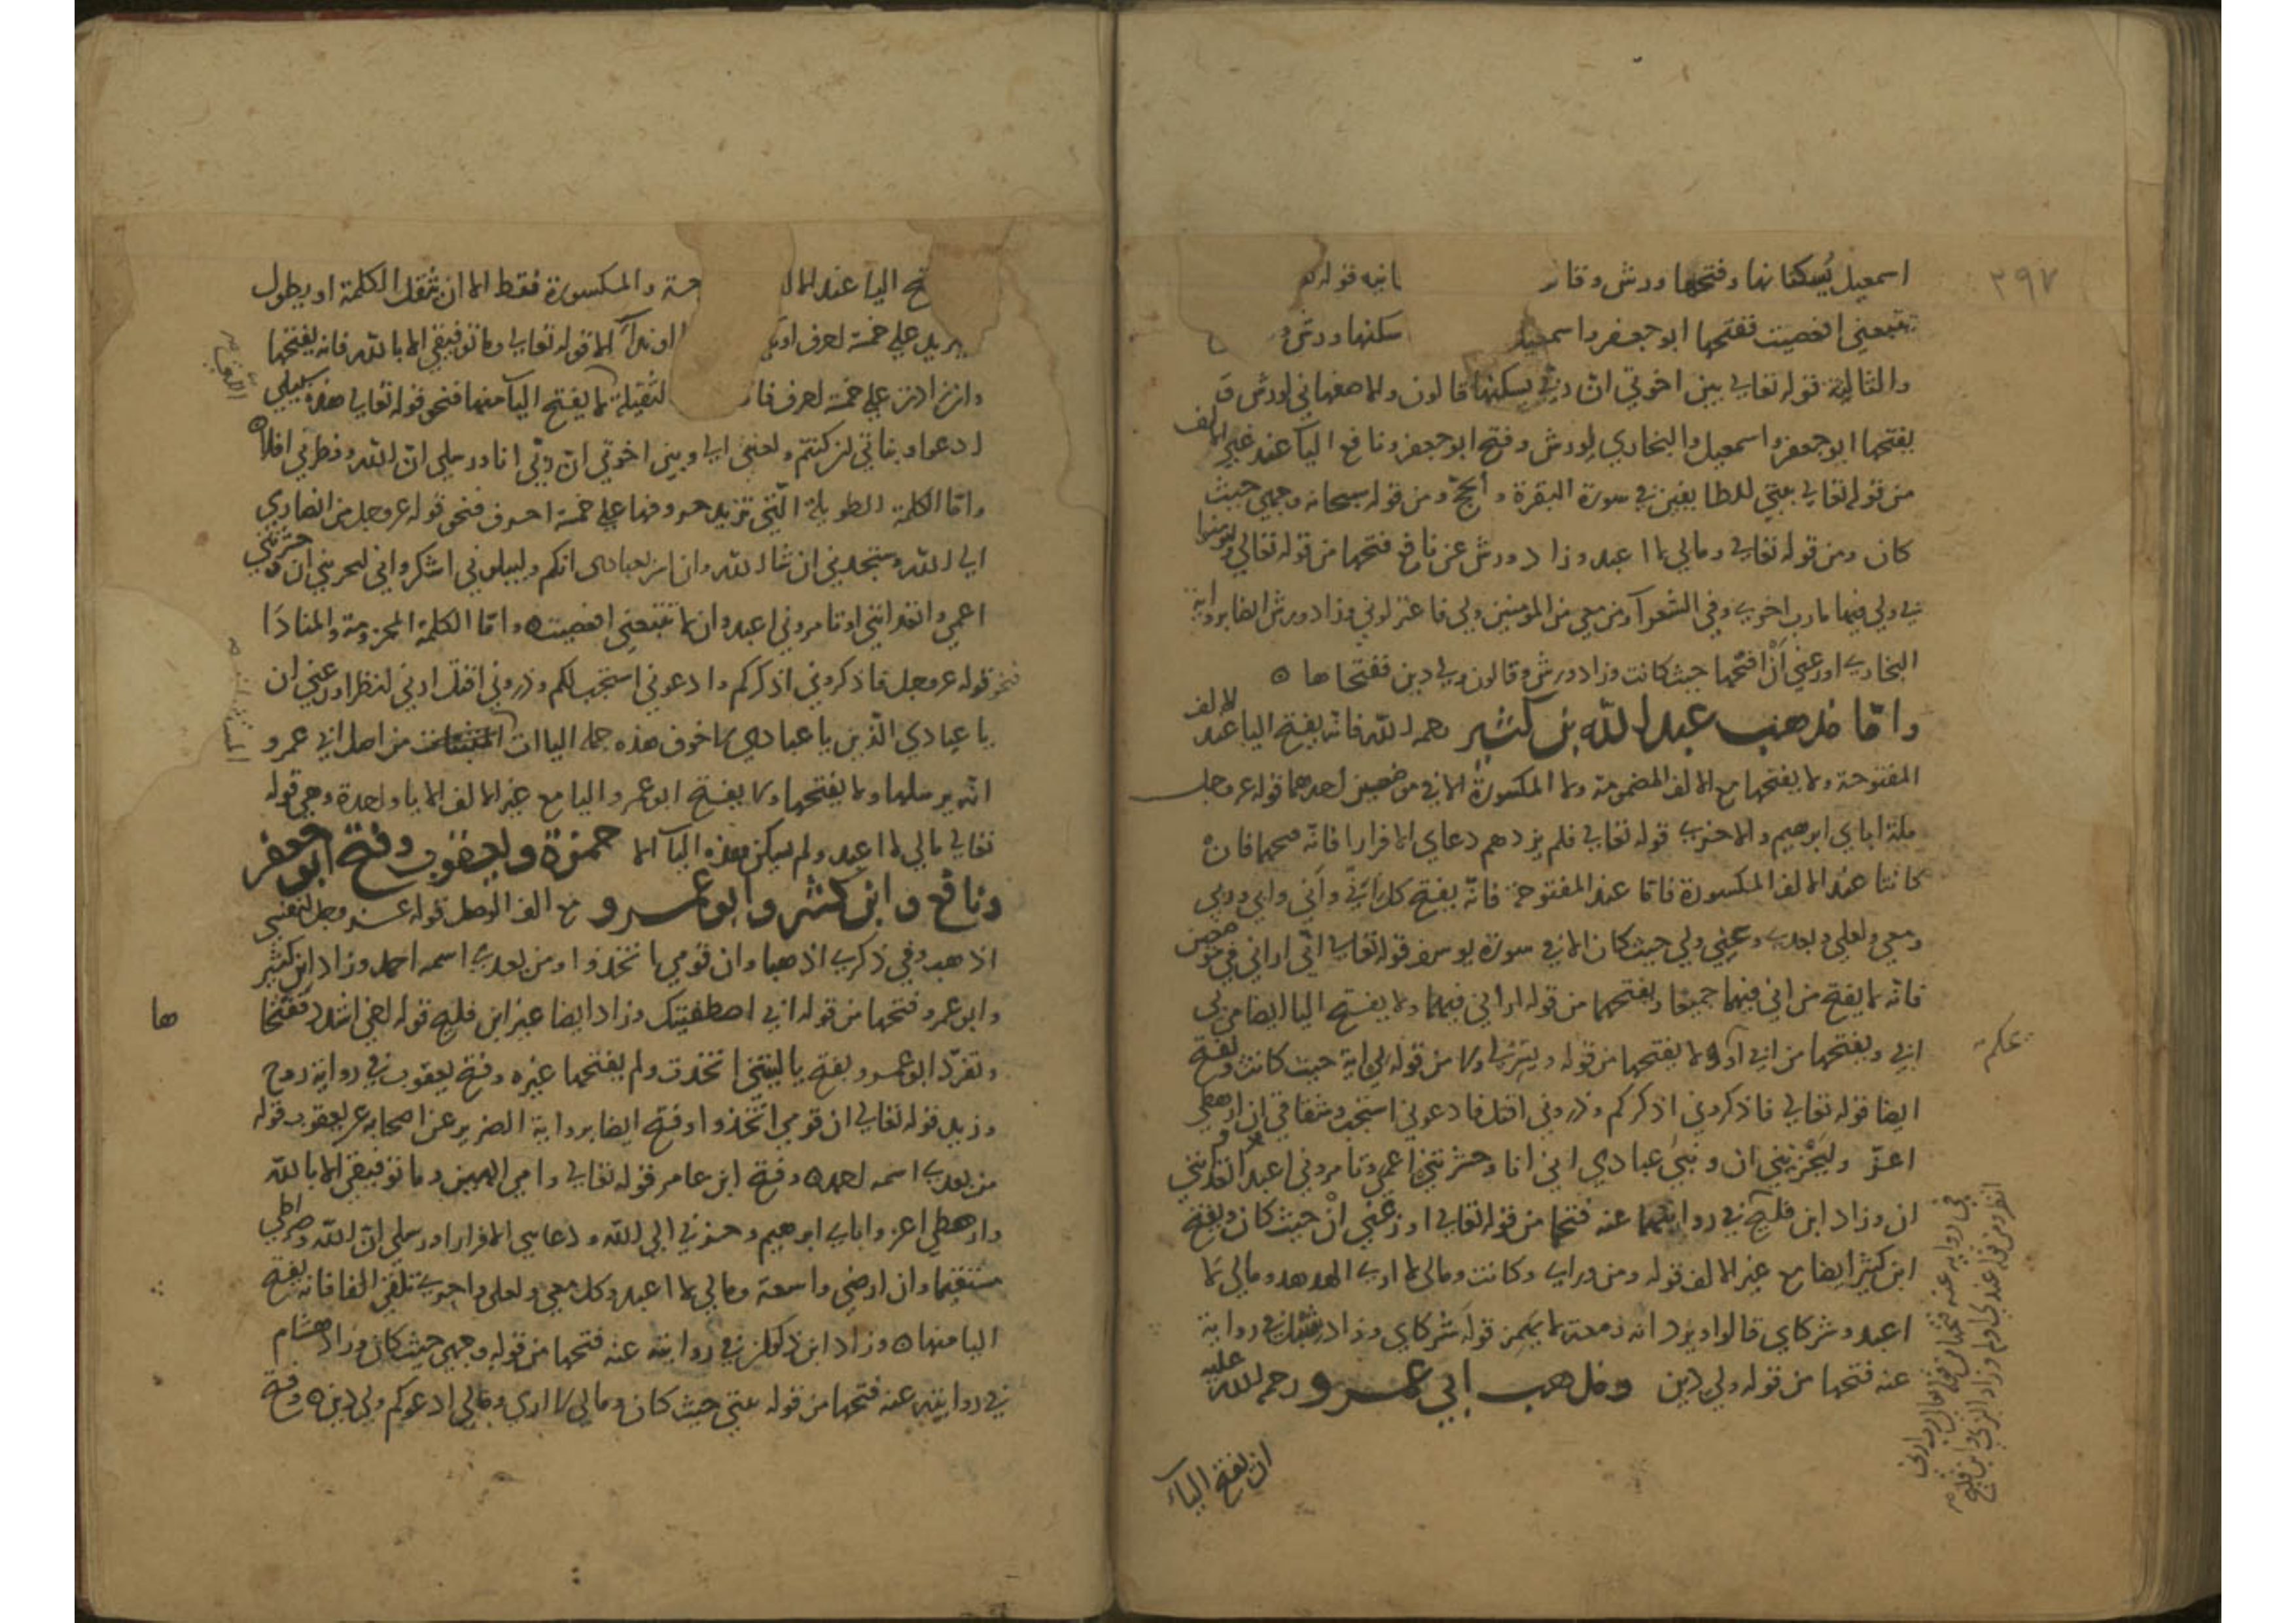 ٢٩٧
اسمعيل يُسكنانها وفتحها ورش وقا انيه قوله
تتبعني افعصيت ففتحها ابو جعفر واسمعيل سكنها ورش و
والثالثة قوله تعالى بين اخوتي ان ربي يسكنها قالون والاصفهاني لورش و
يفتحها ابو جعفر واسمعيل والبخاري لورش وفتح ابو جعفر ونافع اليا عند غير الالف
من قوله تعالى بيتي للطايفين في سورة البقرة والحج ومن قوله سبحانه وجهي حيث
كان ومن قوله تعالى ومالي لا اعبد وزاد ورش عن نافع فتحها من قوله تعالى وليومنوا
بي ولي فيها مارب اخرى وفي الشعرآ ومن معي من المومنين ولي فاعتزلوني وزاد ورش ايضا برواية
البخاري اوزعني أنْ افتحها حيث كانت وزاد ورش وقالون ولي دين ففتحاها ٥
واما مذهب عبد الله بن كثير رحمه الله فانه يفتح اليا عند الالف
المفتوحة ولا يفتحها مع الالف المضمومة ولا المكسورة الا في موضعين احدهما قوله عز وجل
ملة اباي ابرهيم والاخرى قوله تعالى فلم يزدهم دعاي الا فرارا فانه فتحها فان
كانتا عند الالف المكسورة فاما عند المفتوحة فانه يفتح كل اني واني وابي وربي
ومعي ولعلي وبعدي وعني ولي حيث كان الا في سورة يوسف قوله تعالى اني اراني في موضعين
فانه لا يفتح من اني فيهما جميعا ويفتحهما من قوله اراني فيهما ولا يفتح اليا ايضا من لي
ابي ويفتحها من ابي او ولا يفتحها من قوله ويسر لي ولا من قوله لي اية حيث كانت وفتح
ايضا قوله تعالى فاذكروني اذكركم وذروني اقتل وادعوني استجب وشقاقي ان ارهطي
اعزّ وليَحْزنني ان ونبي عبادي اني انا وحشرتني اعمى وتامروني اعبد اتعدانني
ان وزاد ابن فليح في روايتهما عنه فتحها من قوله تعالى اوزعني انْ حيث كان ويفتح
ابن كثير ايضا مع غير الالف قوله ومن وراي وكانت ومالي لا ارى الهدهد ومالي لا
اعبد وشركاي قالوا وبرواية زمعة لا يهمز قوله شركاي وزاد في رواية
عنه فتحها من قوله ولي دين ومذهب ابي عمرو رحمه الله عليه
ان يفتح الياء
ح اليا عند الال حة والمكسورة فقط الا ان تثقل الكلمة او يطول
يزيد على خمسة احرف او الا قوله تعالى وما توفيقي الا بالله فانه يفتحها
وان زادت على خمسة احرف فا لثقيلة لا يفتح اليا منها فنحو قوله تعالى هذه سبيلي
ادعوا وبناتي ان كنتم ولعنتي الى وبين اخوتي ان ربي انا ورسلي ان الله وفطرني افلا٥
واما الكلمة الطويلة التي تزيد حروفها على خمسة احرف فنحو قوله عز وجل من انصاري
الى الله وستجدني ان شا الله وان اسر بعبادي انكم وليبلوني اشكر واني ليحزنني ان حشرتني
اعمى واتعدانني او تامروني اعبد وان لا تتبعني افعصيت٥ واما الكلمة المجزومة والمنادَا
فنحو قوله عز وجل فاذكروني اذكركم وادعوني استجب لكم وذروني اقتل ارني انظر اوزعني ان
يا عبادي الذين يا عبادي لا خوف هذه جملة الياات من اصل ابي عمرو
انه يرسلها ولا يفتحها ولا يفتح ابو عمرو اليا مع غير الالف الا يا واحدة وهي قوله
تعالى مالي لا اعبد ولم يسكن هذه اليا الا حمزة ويعقوب وفتح ابو جعفر
ونافع وابن كثير وابو عمرو مع الف الوصل قوله عز وجل لنفسي
اذهب وفي ذكري اذهبا وان قومي اتخذوا ومن بعدي اسمه احمد وزاد ابن كثير
وابو عمرو فتحها من قوله اني اصطفيتك وزاد ايضا غير ابن فليح قوله اخي اشدد ففتحا ها
وتفرد ابو عمرو بفتح يا ليتني اتخذت ولم يفتحها غيره وفتح يعقوب في رواية روح
وزيد قوله تعالى ان قومي اتخذوا وفتح ايضا برواية الضرير عن اصحابه عن يعقوب قوله
من بعدي اسمه احمد٥ وفتح ابن عامر قوله تعالى وامي الهين وما توفيقي الا بالله
وارهطي اعز واباي ابرهيم وحزني الى الله ودعاسي الا فرارا ورسلي ان الله وصراطي
مستقيما وان ارضي واسعة ومالي لا اعبد وكل معي ولعلي واجري تلقى الفا فانه يفتح
اليا منها٥ وزاد ابن ذكوان في روايته عنه فتحها من قوله وجهي حيث كان وزاد هشام
في روايته عنه فتحها من قوله بيتي حيث كان ومالي لا ارى ومالي ادعوكم ولي دين٥ وفتح